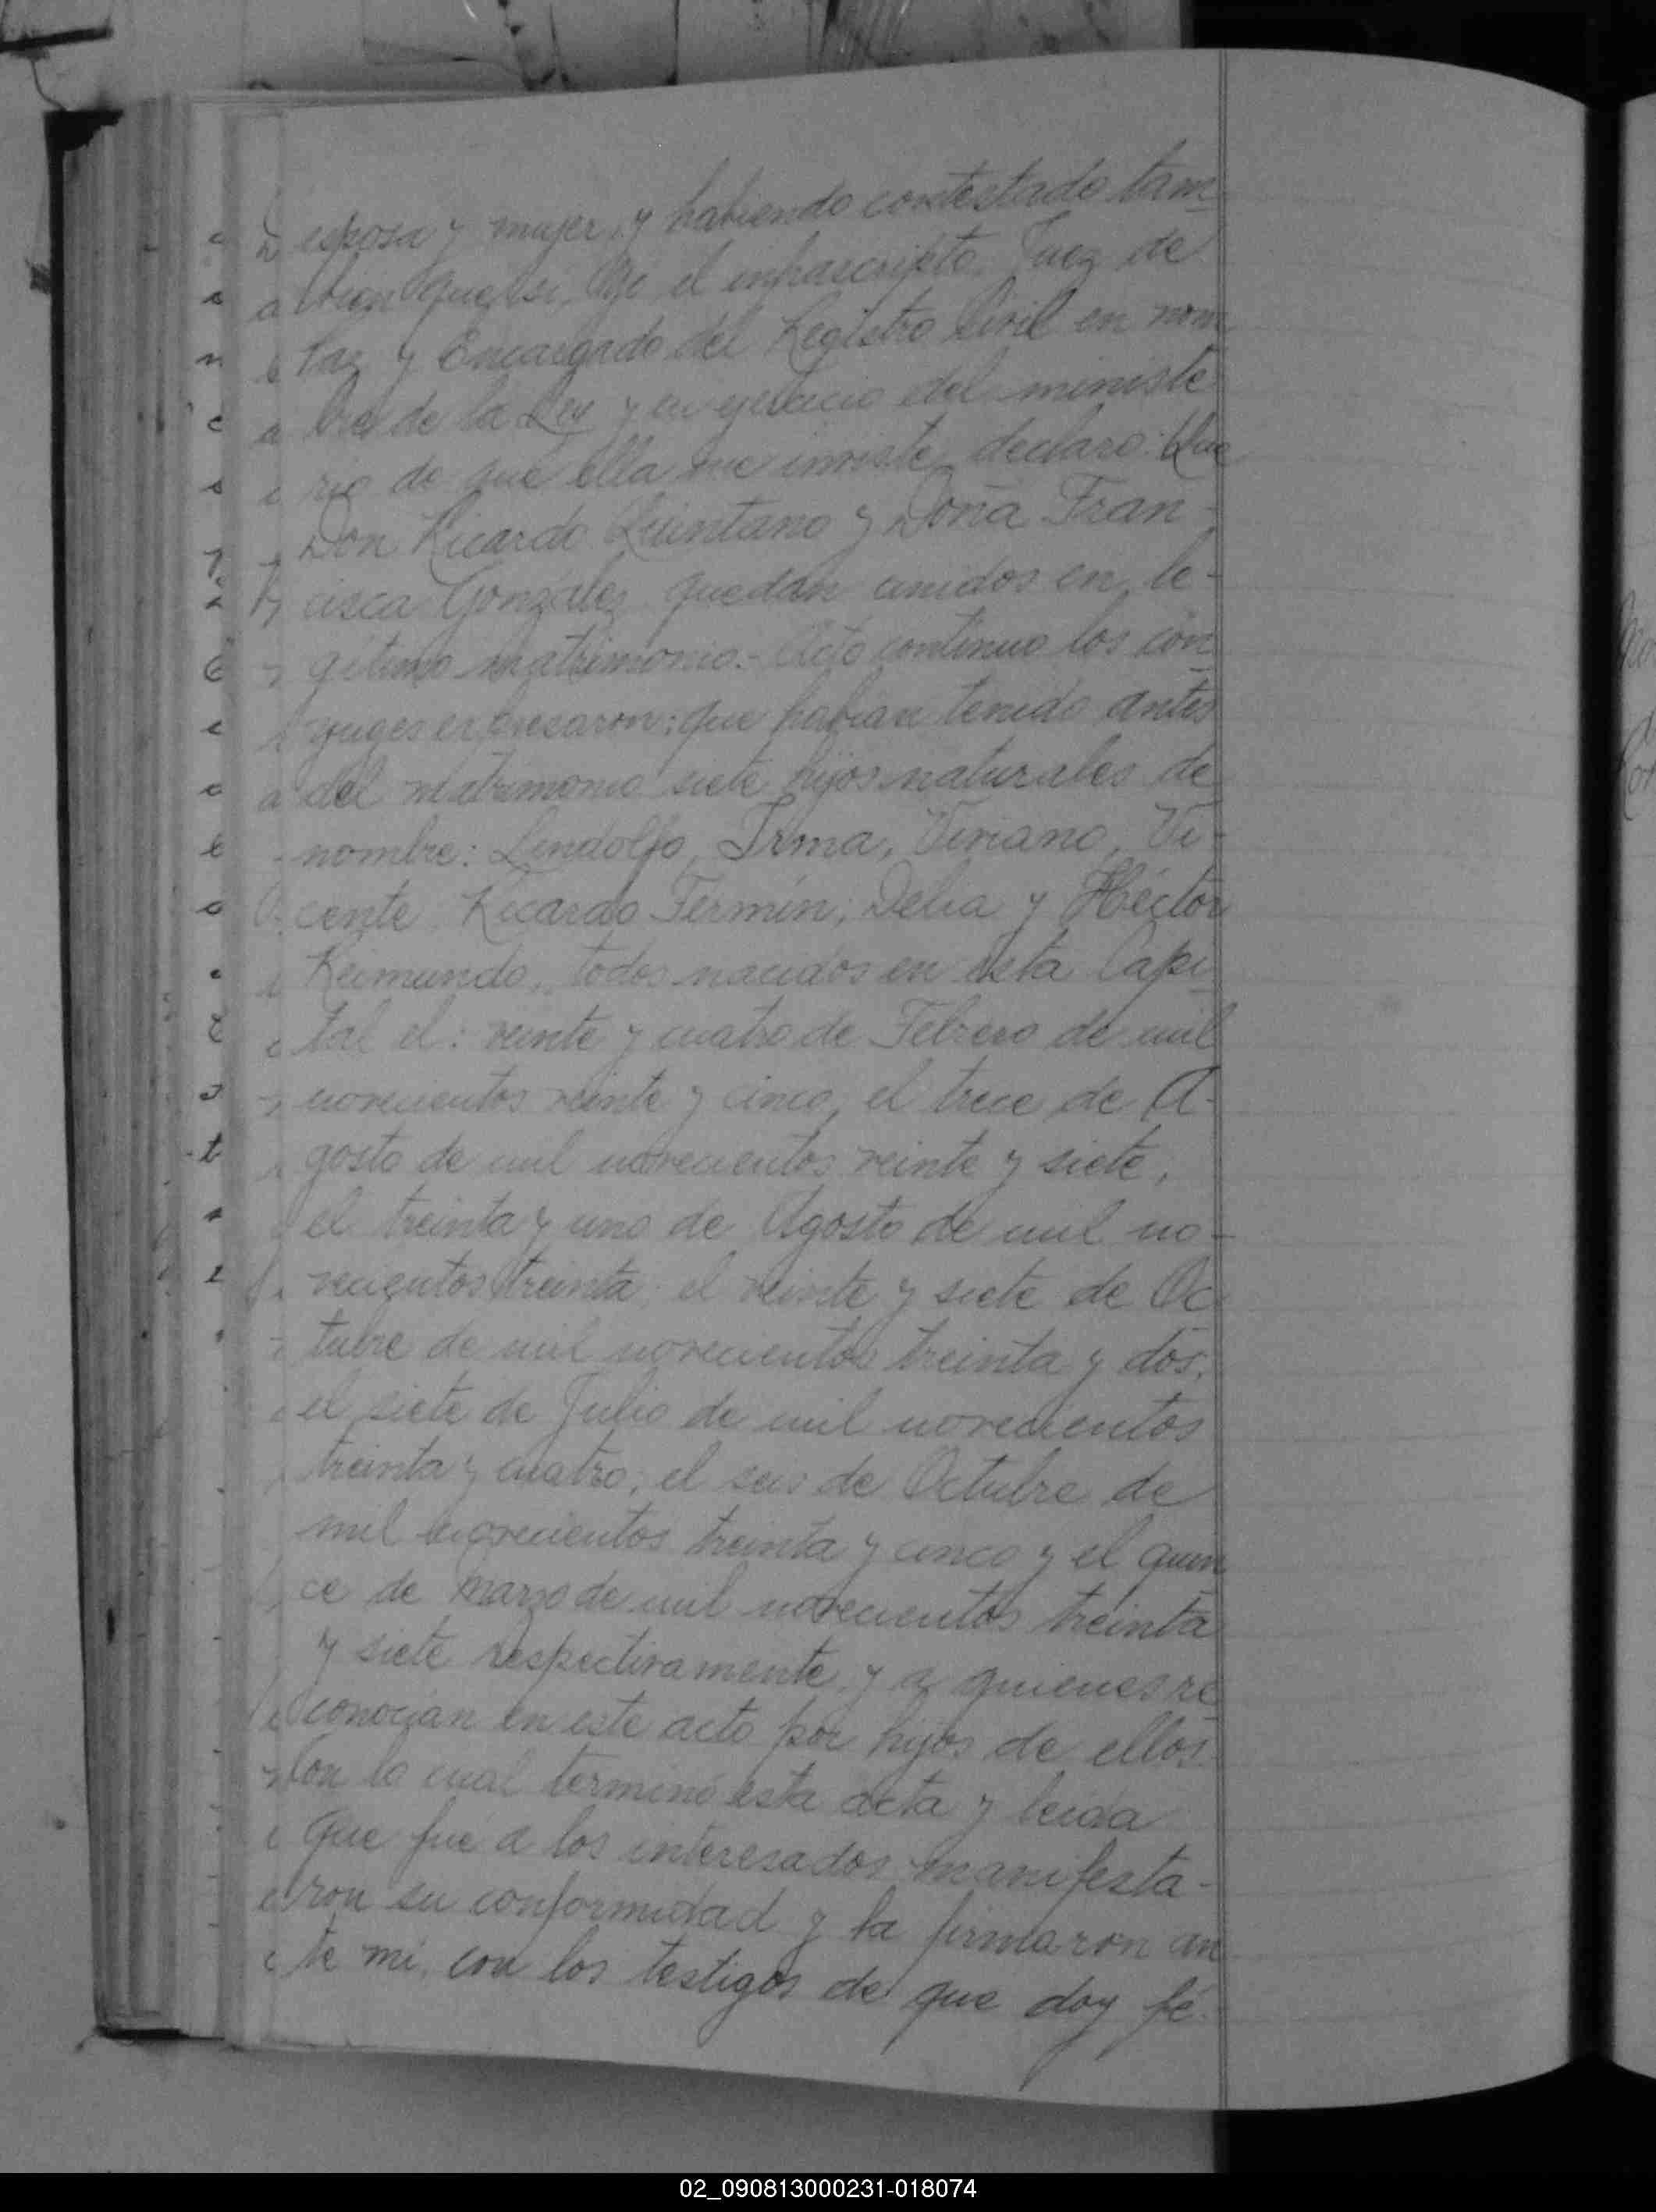 esposa y mujer, y habiendo contestado tam-
bien que si, Yo el infrascripto Juez de
Paz y Encargado del Registro Civil en nom
bre de la Ley y en ejercicio del ministe
rio de que ella me inviste, declaro: Que
Don Ricardo Quintano y Doña Fran-
cisca Gonzalez quedan unidos en le-
gítimo matrimonio.- Acto continuo los cón
yuges expresaron: que habían tenido antes
del matrimonio siete hijos naturales de
nombre: Lindolfo, Irma, Viviano, Vi-
cente, Ricardo Fermín; Delia y Héctor
Reimundo, todos nacidos en esta Capi
tal el: veinte y cuatro de Febrero de mil
novecientos veinte y cinco, el trece de A-
gosto de mil novecientos veinte y siete,
el treinta y uno de Agosto de mil no-
vecientos treinta; el veinte y siete de Oc
tubre de mil novecientos treinta y dos;
el siete de Julio de mil novecientos
treinta y cuatro; el seis de Octubre de
mil novecientos treinta y cinco y el quin
ce de Marzo de mil novecientos treinta
y siete respectivamente y a quienes re
conocían en este acto por hijos de ellos.
Con lo cual terminó esta acta y leída
que fue a los interesados manifesta-
ron su conformidad y la firmaron an
te mi, con los testigos de que doy fé.
02_090813000231-018074